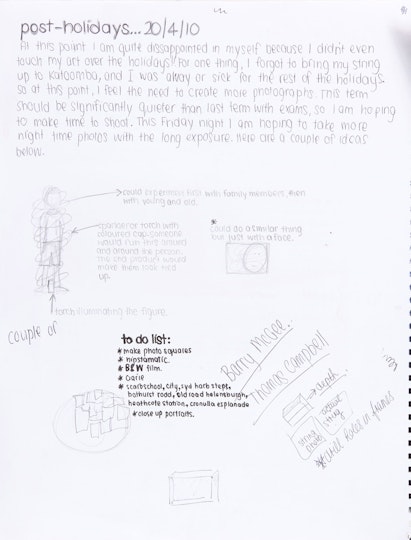 post-holidays... 20/4/10
At this point I am quite dissappointed in myself because I didn't even
touch my art over the holidays! For one thing, I forgot to bring my string
up to Katoomba, and I was away or sick for the rest of the holidays.
So at this point, I feel the need to create more photographs. This term
should be significantly quieter than last term with exams, so I am hoping
to make time to shoot. This Friday night I am hoping to take more
night time photos with the long exposure. Here are a couple of ideas
below.
could experiment first with family members, then
with young and old.
sparkler or torch with
coloured cap. someone
would run this around
and around the person.
the end product would
make them look tied
up.
* could do a similar thing
but just with a face.
torch illuminating the figure.
couple of
to do list:
* make photo squares
* hipstamatic.
* B&W film.
* scarbschool, city, syd harb stept,
bathurst road, old road helensburgh,
heathcote station, cronulla esplanade
* close up portraits.
Barry McGee.
Thomas Campbell
depth
string
string
* drill holes in frames